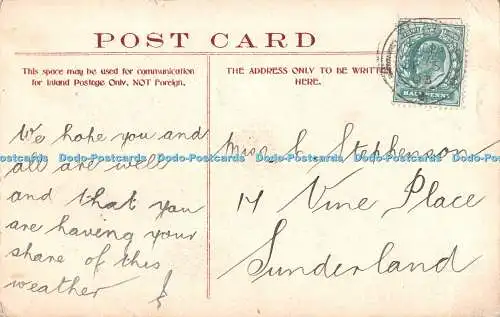 POST CARD
This space may be used for communication
for Inland Postage Only, NOT Foreign.
THE ADDRESS ONLY TO BE WRITTEN
HERE.
We hope you and
all are well
and that you
are having your
share of this
weather
Miss S. Stephenson
17 Vine Place
Sunderland
HALFPENNY
Dodo-Postcards Dodo-Postcards Dodo-Postcards Dodo-Postcards Dodo-Postcards Dodo-Postcards